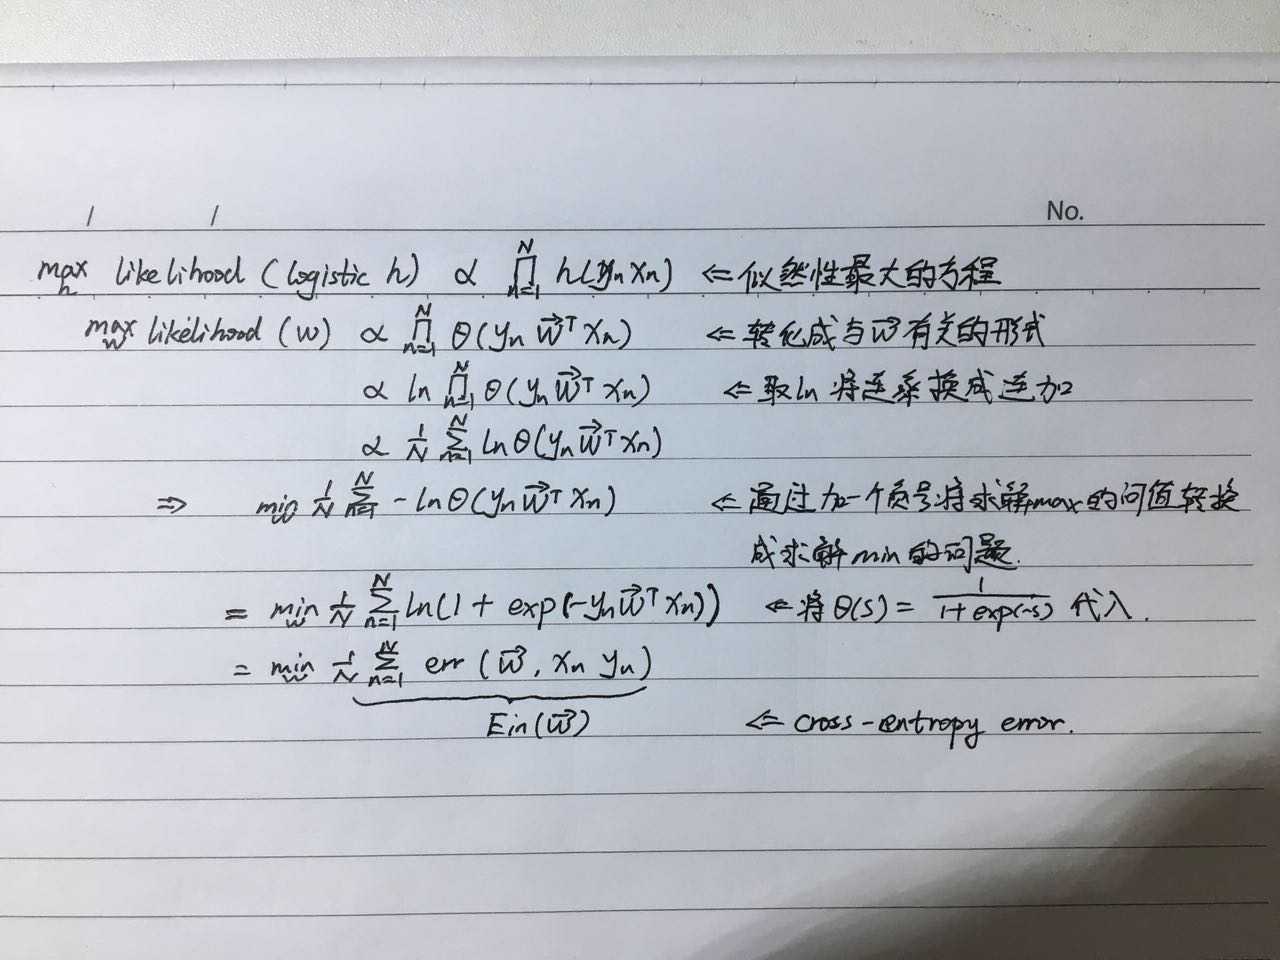 / / No.
max h likelihood (logistic h) ∝ ∏_{n=1}^{N} h(y_n x_n) ⇐ 似然性最大的方程
max w likelihood (w) ∝ ∏_{n=1}^{N} θ(y_n w⃗ᵀ x_n) ⇐ 转化成与w⃗有关的形式
∝ ln ∏_{n=1}^{N} θ(y_n w⃗ᵀ x_n) ⇐ 取ln 将连乘换成连加
∝ 1/N ∑_{n=1}^{N} ln θ(y_n w⃗ᵀ x_n)
⇒ min w 1/N ∑_{n=1}^{N} - ln θ(y_n w⃗ᵀ x_n) ⇐ 通过加一个负号将求解max的问值转换
成求解min的问题.
= min w 1/N ∑_{n=1}^{N} ln(1 + exp(-y_n w⃗ᵀ x_n)) ⇐ 将θ(s) = 1/(1+exp(-s)) 代入.
= min w 1/N ∑_{n=1}^{N} err (w⃗, x_n y_n)
Ein(w⃗) ⇐ cross-entropy error.